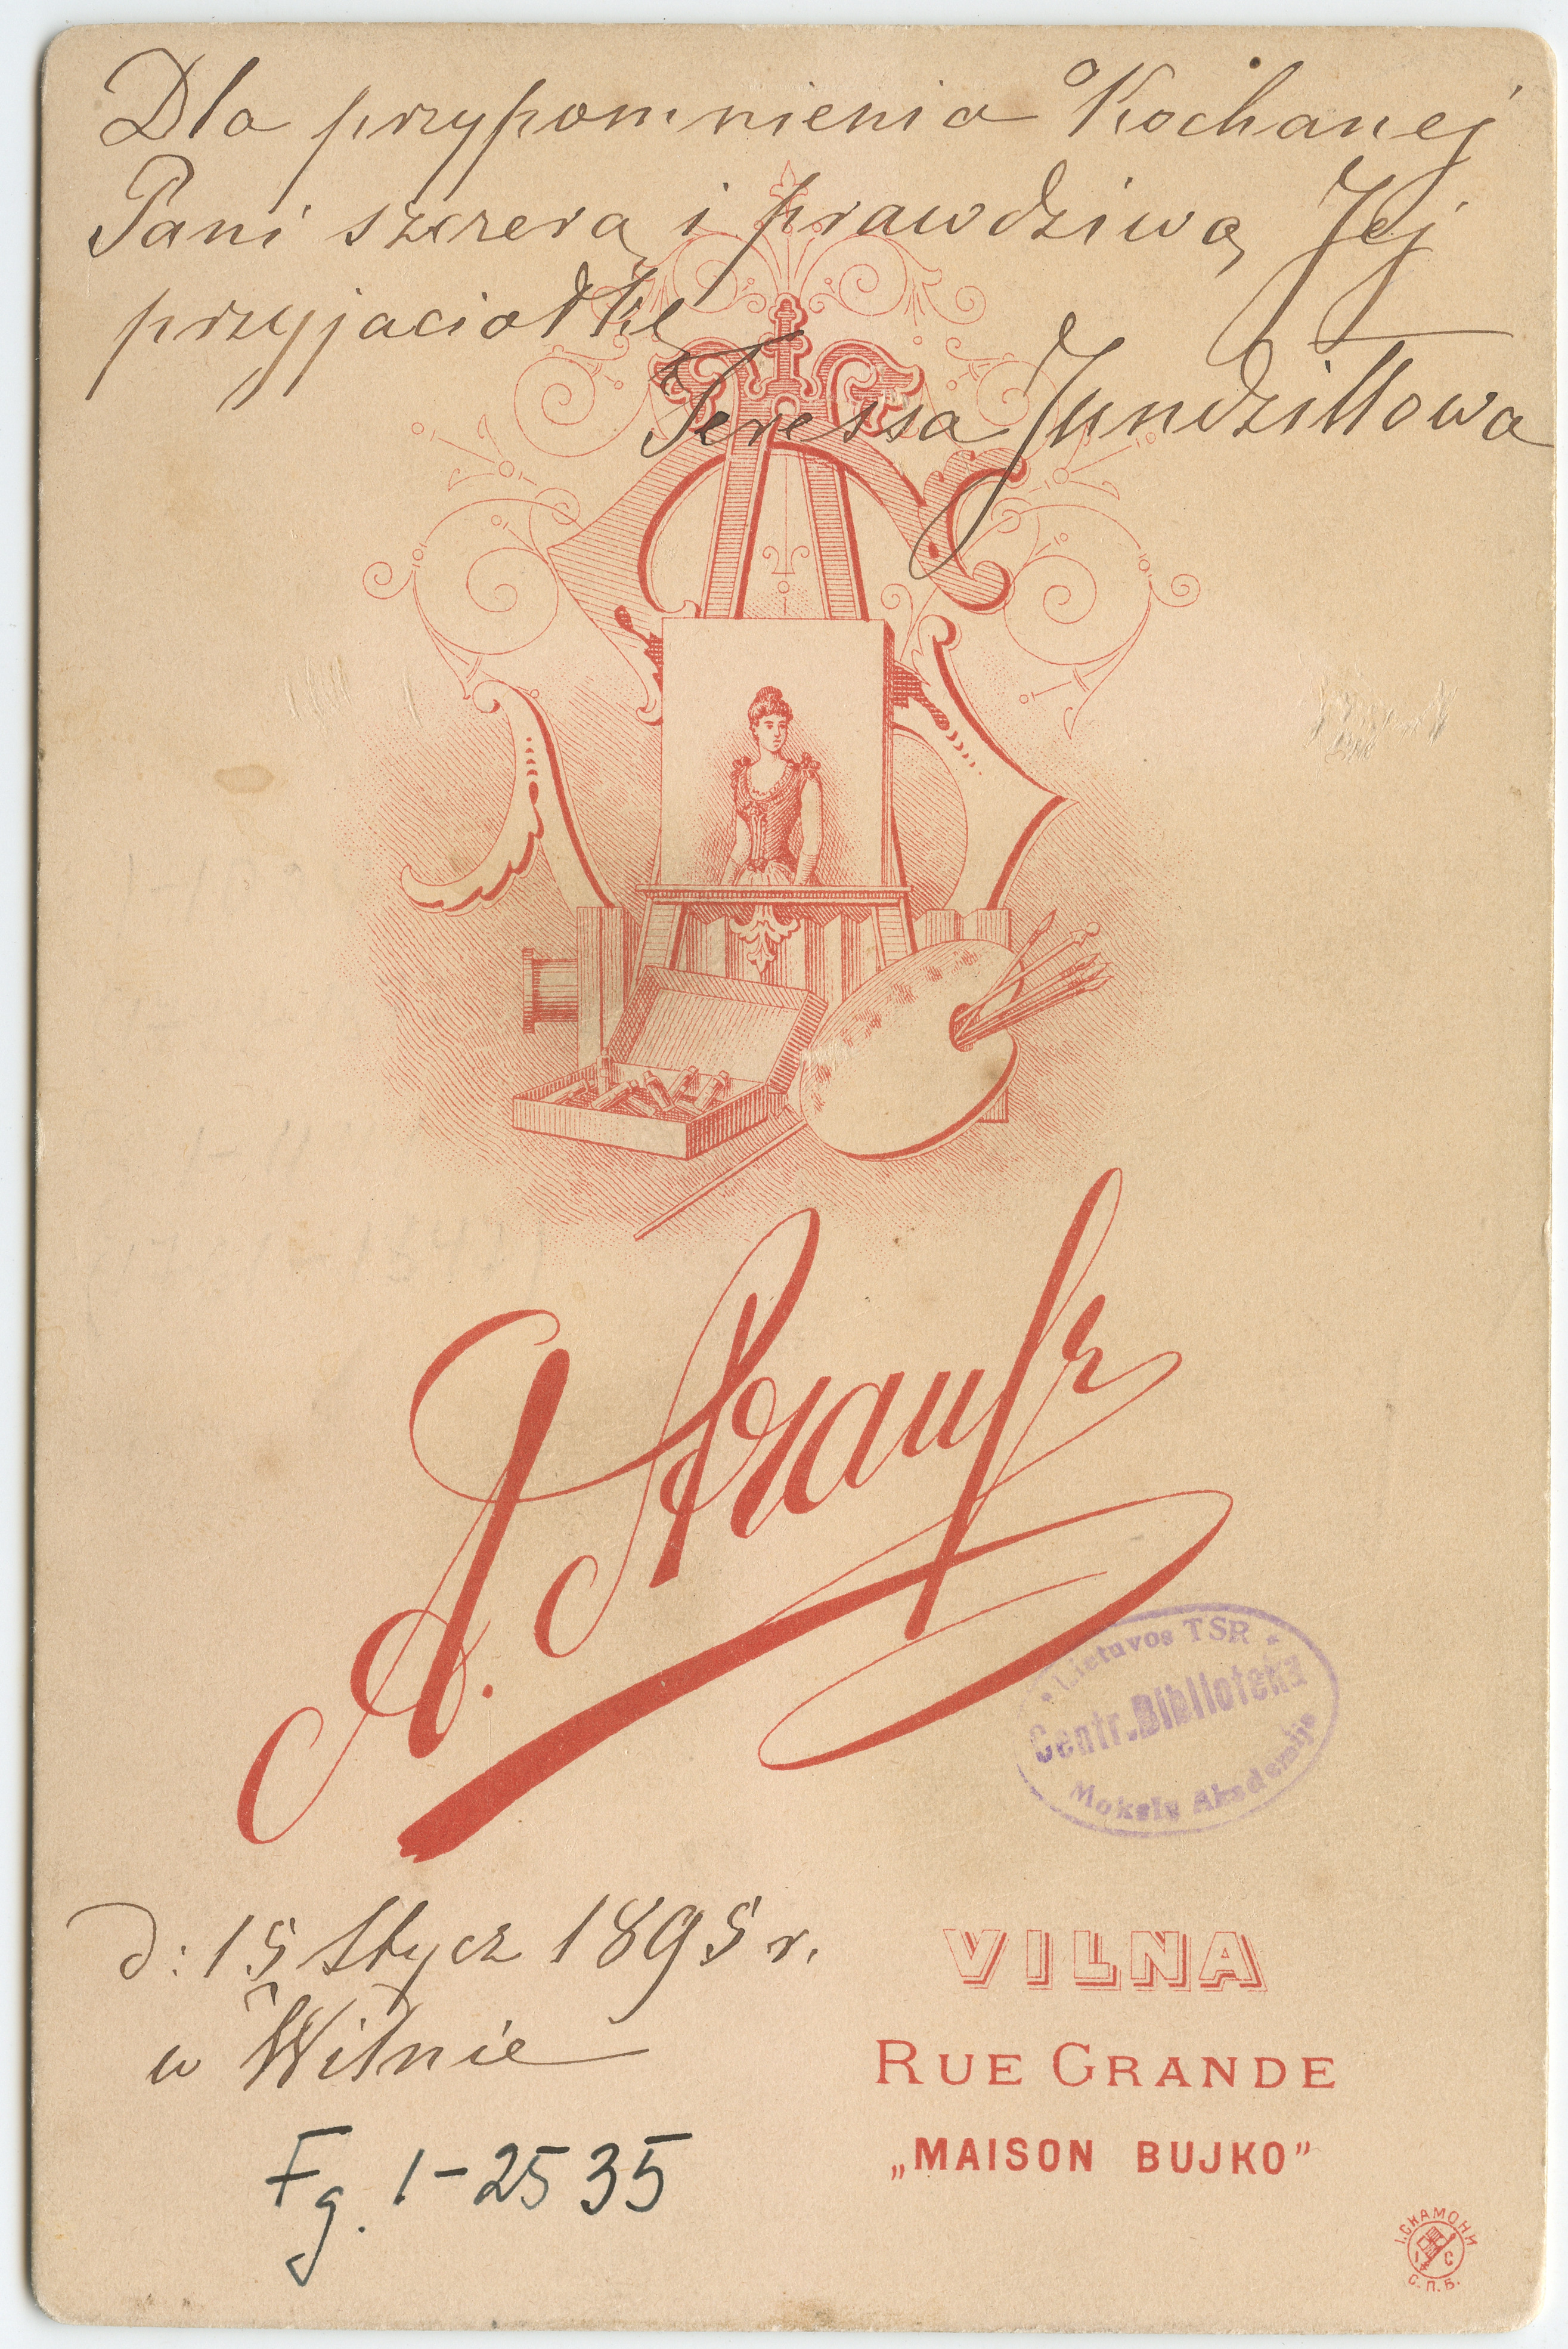 Dla przypomnienia Kochanej
Pani szczerą i prawdziwą Jej
przyjaciołkę
Teressa Jundziłłowa
A. Strauss
Lietuvos TSR
Centr. Biblioteka
Mokslų Akademija
d: 15 Stycz 1895 r.
w Wilnie
VILNA
RUE GRANDE
„MAISON BUJKO”
Fg. 1-2535
І. СКАМОНИ
І С
С.П.Б.